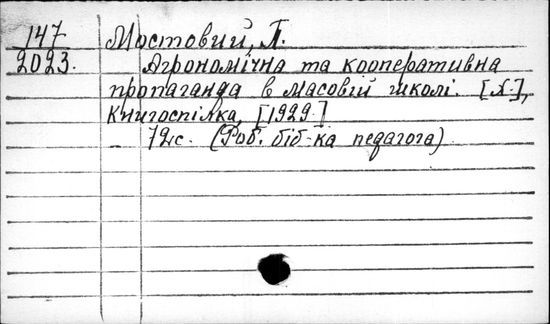 147 Мостовий, П.
2023. Агрономічна та кооперативна
пропаганда в масовій школі. [Х.],
Книгоспілка, [1929.]
72с. (Роб. біб-ка педагога)